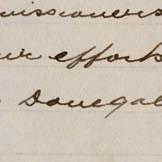 missioners
efforts
Donegal